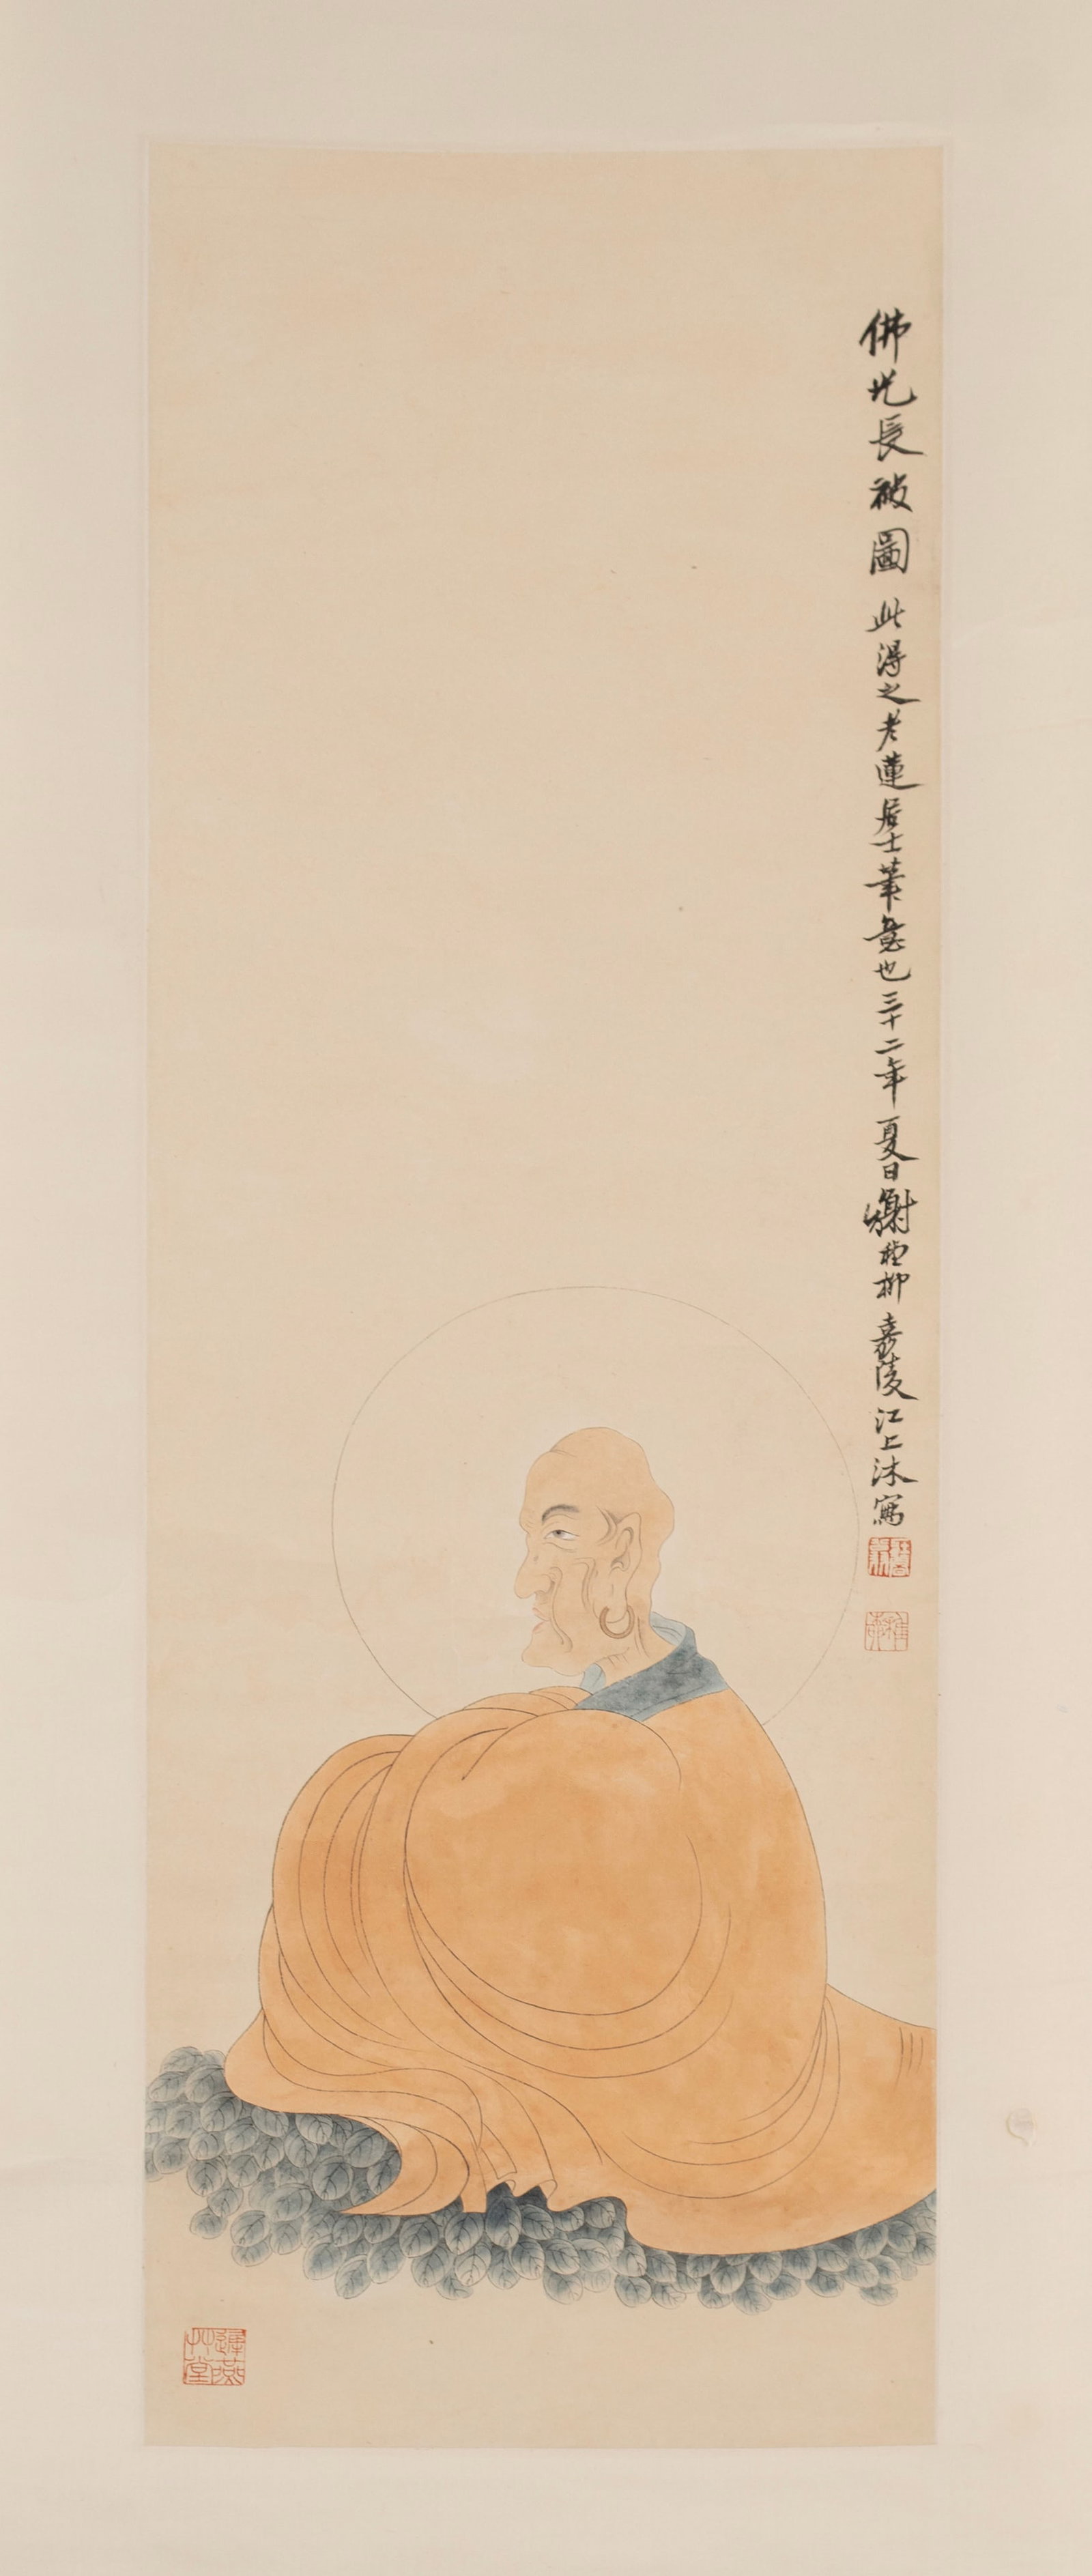 佛光長被圖 此得之老蓮居士筆意也三十二年夏日謝稚柳嘉陵江上沐寫
稚柳
遲燕草堂